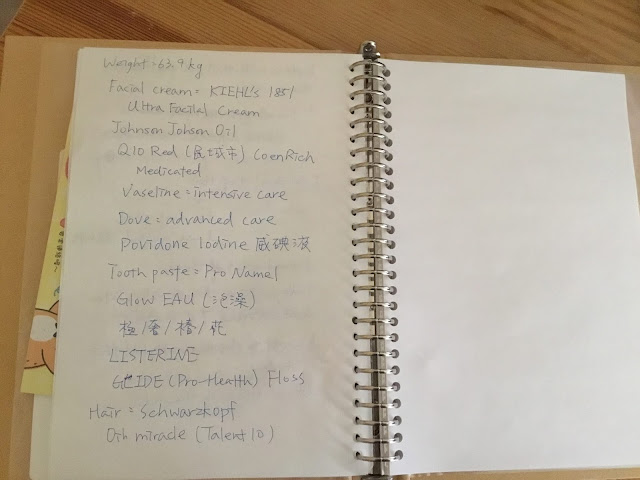 Weight : 63.9 kg
Facial cream = KIEHL's 1851
Ultra Facilal Cream
Johnson Johson Oil
Q10 Red (民城市) CoenRich
Medicated
Vaseline = intensive care
Dove : advanced care
Povidone Iodine 威碘液
Tooth paste = Pro Namel
Glow EAU (泡澡)
LISTERINE
GLIDE (Pro-Health) Floss
Hair = Schwarzkopf
Oil miracle (Talent 10)